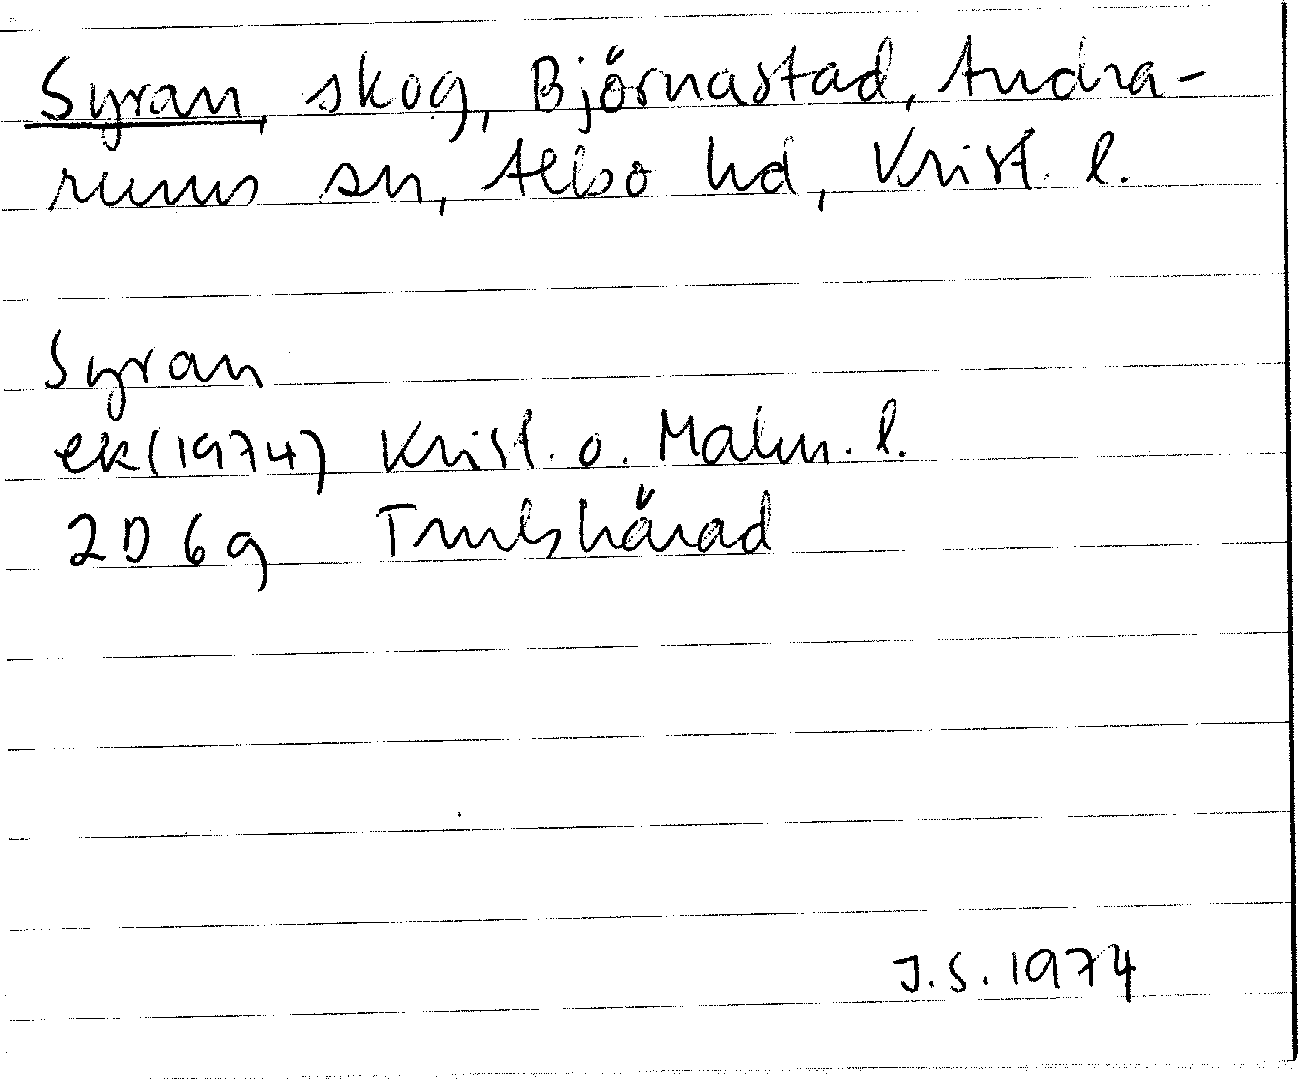 Syran, skog, Björnastad, Andra-
rums sn, Albo hd, Krist. l.
Syran
ek (1974) Krist. o. Malm. l.
2D 6g Trulshärad
J.S. 1974